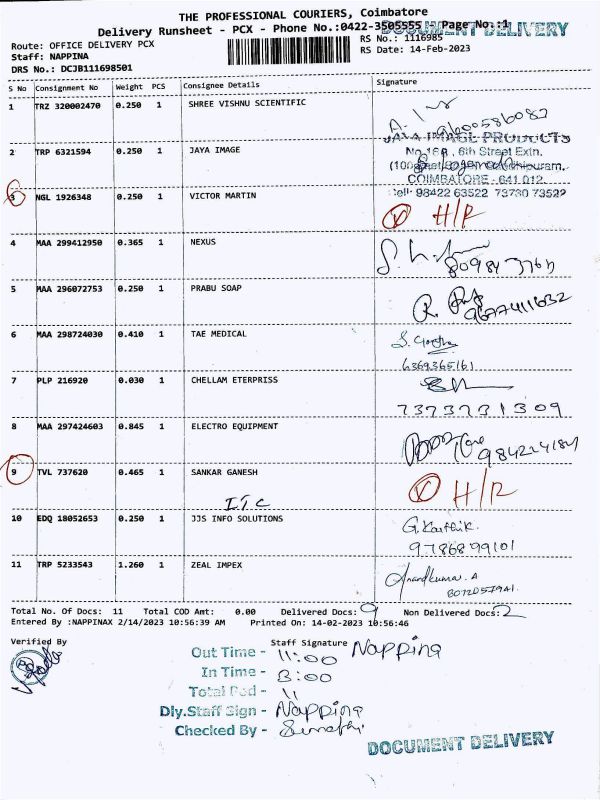 THE PROFESSIONAL COURIERS, Coimbatore
Delivery Runsheet - PCX - Phone No.:0422-3505555 - Page No.:1
DOCUMENT DELIVERY
Route: OFFICE DELIVERY PCX
RS No.: 1116985
Staff: NAPPINA
RS Date: 14-Feb-2023
DRS No.: DCJB111698501
S No Consignment No Weight PCS Consignee Details Signature
1 TRZ 320002470 0.250 1 SHREE VISHNU SCIENTIFIC
9600586082
2 TRP 6321594 0.250 1 JAYA IMAGE
JAYA IMAGE PRODUCTS
No.16A, 6th Street Extn.
COIMBATORE - 641 012.
Cell: 98422 63522 73730 73522
3 NGL 1926348 0.250 1 VICTOR MARTIN
H/R
4 MAA 299412950 0.365 1 NEXUS
5 MAA 296072753 0.250 1 PRABU SOAP
9677411632
6 MAA 298724030 0.410 1 TAE MEDICAL
6369365161
7 PLP 216920 0.030 1 CHELLAM ETERPRISS
7373731309
8 MAA 297424603 0.845 1 ELECTRO EQUIPMENT
9 TVL 737620 0.465 1 SANKAR GANESH
H/R
ITC
10 EDQ 18052653 0.250 1 JJS INFO SOLUTIONS
G. Karthik.
9786899101
11 TRP 5233543 1.260 1 ZEAL IMPEX
Anandkumar. A
Total No. Of Docs: 11 Total COD Amt: 0.00 Delivered Docs: 9 Non Delivered Docs: 2
Entered By :NAPPINAX 2/14/2023 10:56:39 AM Printed On: 14-02-2023 10:56:46
Verified By
Staff Signature Nappina
Out Time - 11:00
In Time - 3:00
Total Pod - 11
Dly.Staff Sign - Nappina
Checked By -
DOCUMENT DELIVERY